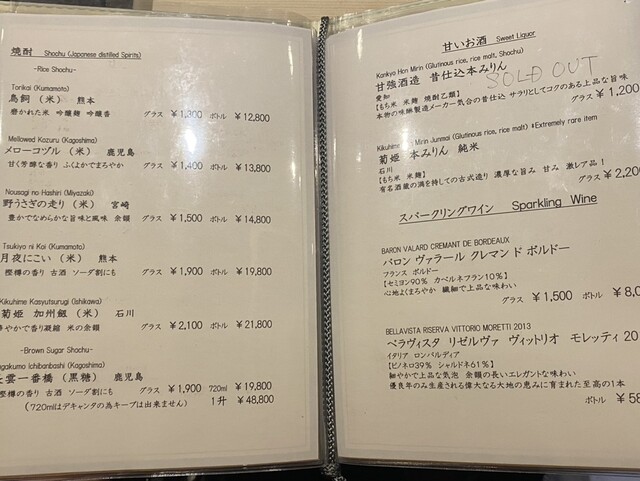 焼酎 Shochu (Japanese distilled Spirits)
-Rice Shochu-
Torikai (Kumamoto)
鳥飼（米） 熊本
磨かれた米 吟醸麹 吟醸香 グラス ¥1,300 ボトル ¥12,800
Mellowed Kozuru (Kagoshima)
メローコヅル（米） 鹿児島
甘く芳醇な香り ふくよかでまろやか グラス ¥1,400 ボトル ¥13,800
Nousagi no Hashiri (Miyazaki)
野うさぎの走り（米） 宮崎
豊かでなめらかな旨味と風味 余韻 グラス ¥1,500 ボトル ¥14,800
Tsukiyo ni Koi (Kumamoto)
月夜にこい（米） 熊本
樫樽の香り 古酒 ソーダ割にも グラス ¥1,900 ボトル ¥19,800
Kikuhime Kasyutsurugi (Ishikawa)
菊姫 加州剱（米） 石川
華やかで香り凝縮 米の余韻 グラス ¥2,100 ボトル ¥21,800
-Brown Sugar Shochu-
agakumo Ichibanbashi (Kagoshima)
長雲一番橋（黒糖） 鹿児島
樫樽の香り 古酒 ソーダ割にも グラス ¥1,900 720ml ¥19,800
（720mlはデキャンタの為キープは出来ません） 1升 ¥48,800
甘いお酒 Sweet Liquor
Kankyo Hon Mirin (Glutinous rice, rice malt, Shochu)
甘強酒造 昔仕込本みりん
SOLD OUT
愛知
【もち米 米麹 焼酎乙類】
本物の味醂製造メーカー気合の昔仕込 サラリとしてコクのある上品な旨味
グラス ¥1,200
Kikuhime Mirin Junmai (Glutinous rice, rice malt) ※Extremely rare item
菊姫 本みりん 純米
石川
【もち米 米麹】
有名酒蔵の満を持しての古式造り 濃厚な旨み 甘み 激レア品！
グラス ¥2,200
スパークリングワイン Sparkling Wine
BARON VALARD CREMANT DE BORDEAUX
バロン ヴァラール クレマン ド ボルドー
フランス ボルドー
【セミヨン90％ カベルネフラン10％】
心地よくまろやか 繊細で上品な味わい
グラス ¥1,500 ボトル ¥8,0
BELLAVISTA RISERVA VITTORIO MORETTI 2013
ベラヴィスタ リゼルヴァ ヴィットリオ モレッティ 20
イタリア ロンバルディア
【ピノネロ39％ シャルドネ61％】
細やかで上品な気泡 余韻の長いエレガントな味わい
優良年のみ生産される偉大なる大地の恵みに育まれた至高の1本
ボトル ¥58